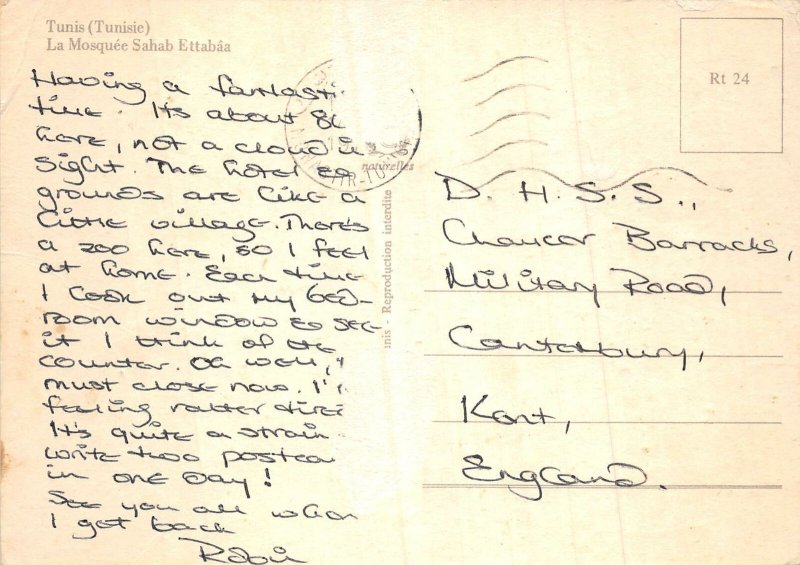 Tunis (Tunisie)
La Mosquée Sahab Ettabâa
Rt 24
Having a fantasti
time. It's about 8
here, not a cloud i
sight. The hotel
grounds are like a
little village. There's
a zoo here, so I feel
at home. Each time
I look out my bed-
room window & see
it I think of the
counter. Oh well,
must close now. I'
feeling rather tire
It's quite a strain
write two postca
in one day!
See you all when
I get back
Robin
naturelles
unis - Reproduction interdite
D. H. S. S.,
Chaucer Barracks,
Military Road,
Canterbury,
Kent,
England.